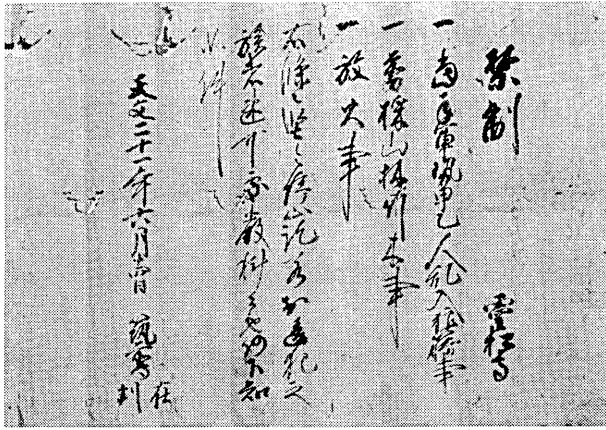 禁制 霊松寺
一当手軍勢甲乙人乱入狼藉事
一剪採山林竹木事
一放火事
右条々堅令停止訖若於違犯之
族者速可処厳科之由仍下知
如件
天文二十一年六月 日 筑前守
在判